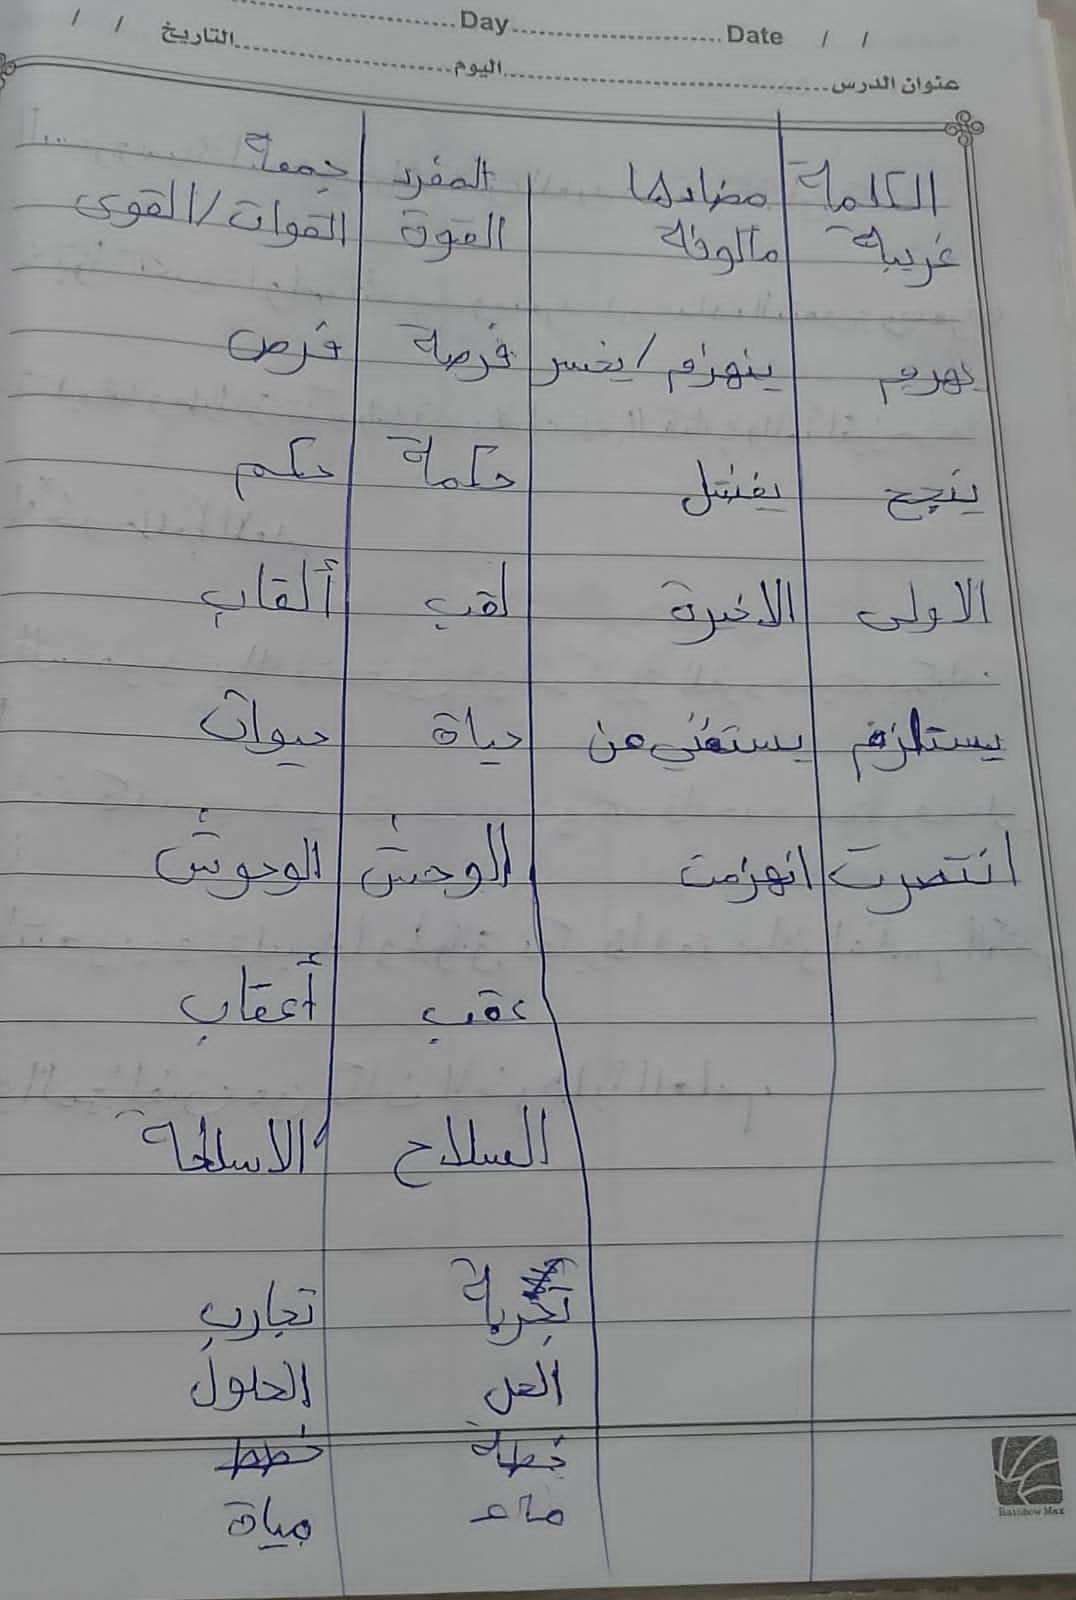 Day ........ Date / /
/ / التاريخ ........
عنوان الدرس ........ اليوم ........
الكلمة مضادها المفرد جمعه
غريبة مألوفة القوة القوات/القوى
يهزم ينهزم/يخسر فرصة فرص
ينجح يفشل حكمة حكم
الاولى الاخيرة لقب ألقاب
يستلزم يستغني عن حياة حيوات
انتصرت انهزمت الوحش الوحوش
عقب أعقاب
السلاح الاسلحة
تجربة تجارب
الحل الحلول
خطة خطط
ماء مياة
Rainbow Max